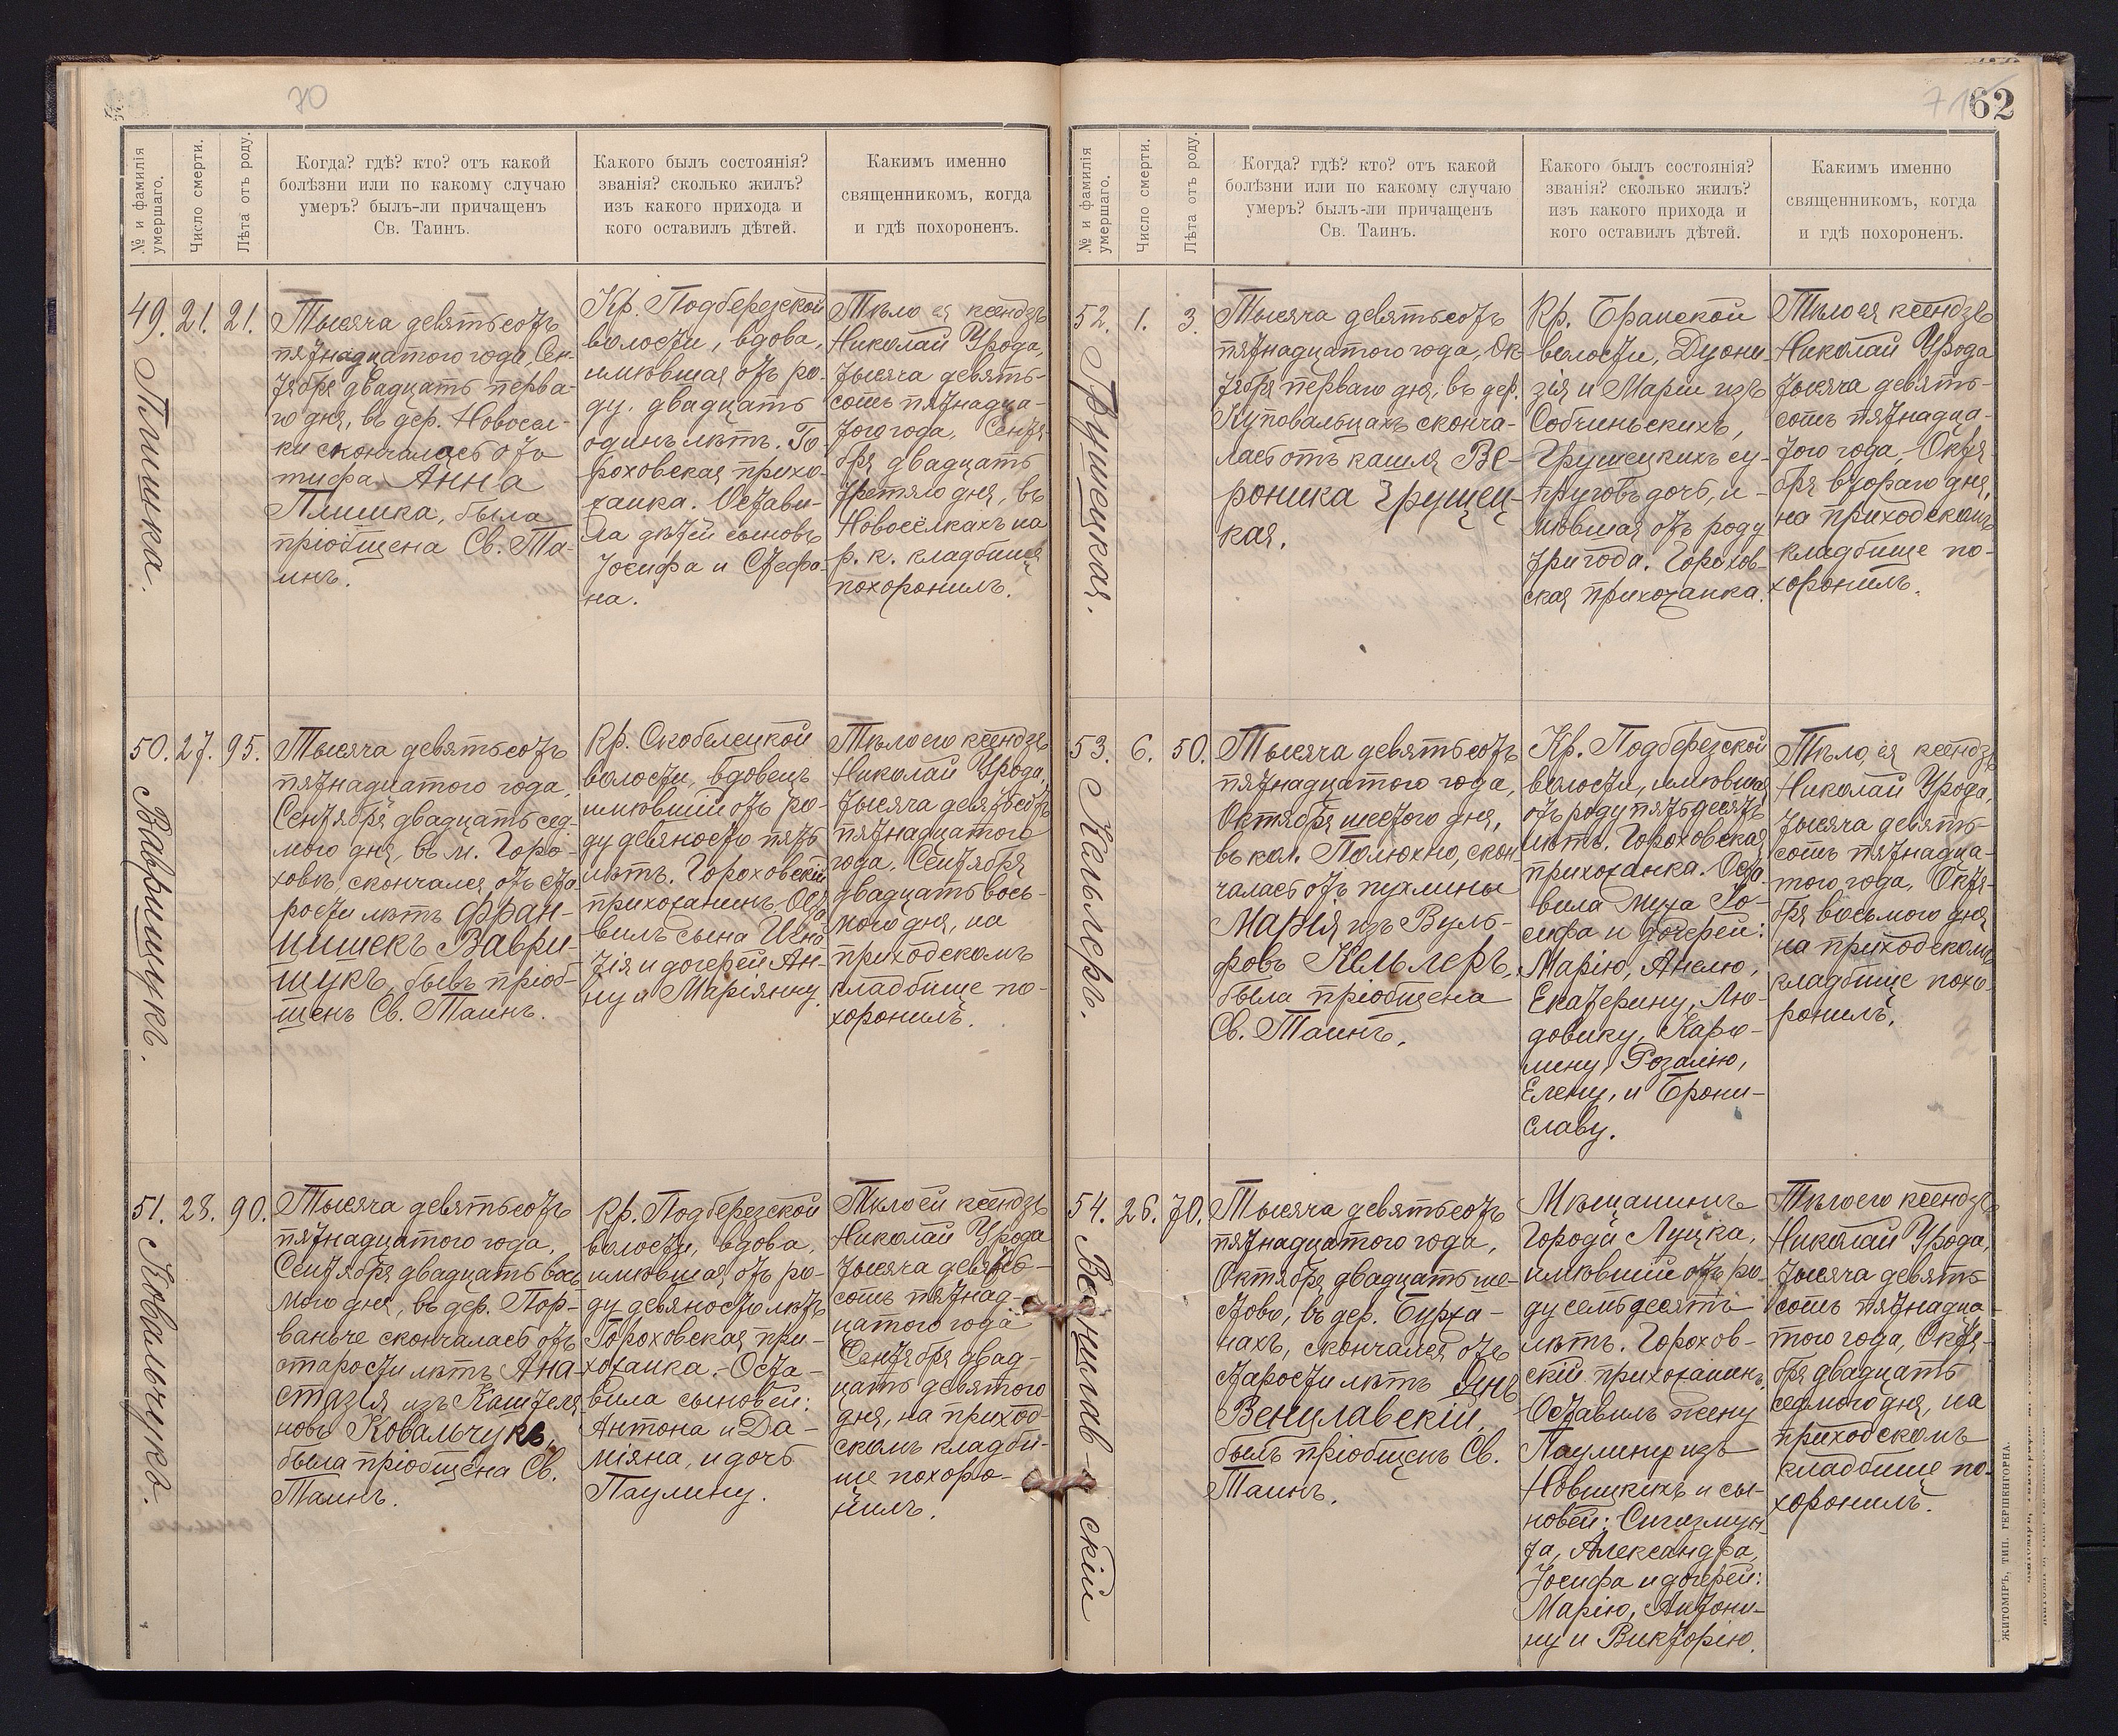 70
№ и фамилія
умершаго.
Число смерти.
Лѣта отъ роду.
Когда? гдѣ? кто? отъ какой
болѣзни или по какому случаю
умеръ? былъ-ли причащенъ
Св. Таинъ.
Какого былъ состоянія?
званія? сколько жилъ?
изъ какого прихода и
кого оставилъ дѣтей.
Какимъ именно
священникомъ, когда
и гдѣ похороненъ.
49.
Плишка.
21.
21.
Тысяча девятьсотъ
пятнадцатого года, Сен-
тября двадцать перва-
го дня, въ дер. Новосел-
ки скончалась отъ
тифа Анна
Плишка, была
пріобщена Св. Та-
инъ.
Кр. Подберезской
волости, вдова,
имѣвшая отъ ро-
ду двадцать
одинъ лѣтъ. Го-
роховская прихо-
жанка. Остави-
ла дѣтей сыновъ
Іосифа и Стефа-
на.
Тѣло ея ксендзъ
Николай Урода,
тысяча девять-
сотъ пятнадца-
того года, Сентя-
бря двадцать
третяго дня, въ
Новосёлкахъ на
р. к. кладбище
похоронилъ.
50.
Вавришукъ.
27.
95.
Тысяча девятьсотъ
пятнадцатого года,
Сентября двадцать сед-
мого дня, въ м. Горо-
ховѣ, скончался отъ ста-
рости лѣтъ Фран-
цишекъ Ваври-
щукъ, бывъ пріоб-
щенъ Св. Таинъ.
Кр. Скобелецкой
волости, вдовецъ,
имѣвшій отъ ро-
ду девяносто пять
лѣтъ. Гороховскій
прихожанинъ. Оста-
вилъ сына Игна-
тія и дочерей Ан-
ну и Маріянну.
Тѣло его ксендзъ
Николай Урода,
тысяча девятьсотъ
пятнадцатого
года, Сентября
двадцать вось-
мого дня, на
приходскомъ
кладбище по-
хоронилъ.
51.
Ковальчукъ.
28.
90.
Тысяча девятьсотъ
пятнадцатого года,
Сентября двадцать вось-
мого дня, въ дер. Пор-
ваньче скончалась отъ
старости лѣтъ Ана-
стазія изъ Каштеля-
новъ Ковальчукъ,
была пріобщена Св.
Таинъ.
Кр. Подберезской
волости, вдова,
имѣвшая отъ ро-
ду девяносто лѣтъ
Гороховская при-
хожанка. Оста-
вила сыновей:
Антона и Да-
міяна, и дочь
Паулину.
Тѣло ей ксендзъ
Николай Урода
тысяча девять-
сотъ пятнад-
цатого года
Сентября двад-
цать девятого
дня, на приход-
скомъ кладби-
ще похоро-
нилъ.
71
62
№ и фамилія
умершаго.
Число смерти.
Лѣта отъ роду.
Когда? гдѣ? кто? отъ какой
болѣзни или по какому случаю
умеръ? былъ-ли причащенъ
Св. Таинъ.
Какого былъ состоянія?
званія? сколько жилъ?
изъ какого прихода и
кого оставилъ дѣтей.
Какимъ именно
священникомъ, когда
и гдѣ похороненъ.
52.
Грушецкая.
1.
3.
Тысяча девятьсотъ
пятнадцатого года, Ок-
тября перваго дня, въ дер.
Куповальцахъ сконча-
лась отъ кашля Ве-
роника Грушец-
кая.
Кр. Бранской
волости, Діони-
зія и Маріи изъ
Собчиньскихъ,
Грушецкихъ су-
пруговъ дочь, и-
мѣвшая отъ роду
три года. Горохов-
ская прихожанка.
Тѣло ея ксендзъ
Николай Урода
тысяча девять-
сотъ пятнадца-
того года, Октя-
бря втораго дня,
на приходскомъ
кладбище по-
хоронилъ.
53.
Кельлеръ.
6.
50.
Тысяча девятьсотъ
пятнадцатого года,
Октября шестого дня,
въ кол. Полюхно, скон-
чалась отъ пухлины
Марія изъ Вуль-
фовъ Кельлеръ,
была пріобщена
Св. Таинъ.
Кр. Подберезской
волости, имѣвшая
отъ роду пятьдесятъ
лѣтъ. Гороховская
прихожанка. Оста-
вила мужа Іо-
сифа и дочерей:
Марію, Анелю,
Екатерину, Лю-
довику, Каро-
лину, Розалію,
Елену, и Брони-
славу.
Тѣло ея ксендзъ
Николай Урода,
тысяча девять-
сотъ пятнадца-
того года, Октя-
бря восьмого дня
на приходскомъ
кладбище похо-
ронилъ.
54.
Венцлав-
скій
26.
70.
Тысяча девятьсотъ
пятнадцатого года,
Октября двадцать ше-
стого, въ дер. Бурха-
нахъ, скончался отъ
старости лѣтъ Янъ
Венцлавскій,
былъ пріобщенъ Св.
Таинъ.
Мѣщанинъ
города Луцка,
имѣвшій отъ ро-
ду семьдесятъ
лѣтъ. Горохов-
скій прихожанинъ.
Оставилъ жену
Паулину изъ
Новицкихъ и сы-
новей: Сигизмун-
та, Александра,
Іосифа и дочерей:
Марію, Антони-
ну и Викторію.
Тѣло его ксендзъ
Николай Урода,
тысяча девять-
сотъ пятнадца-
того года, Октя-
бря двадцать
седмого дня, на
приходскомъ
кладбище по-
хоронилъ.
ЖИТОМІРЪ, ТИП. ГЕРШЕНГОРНА.